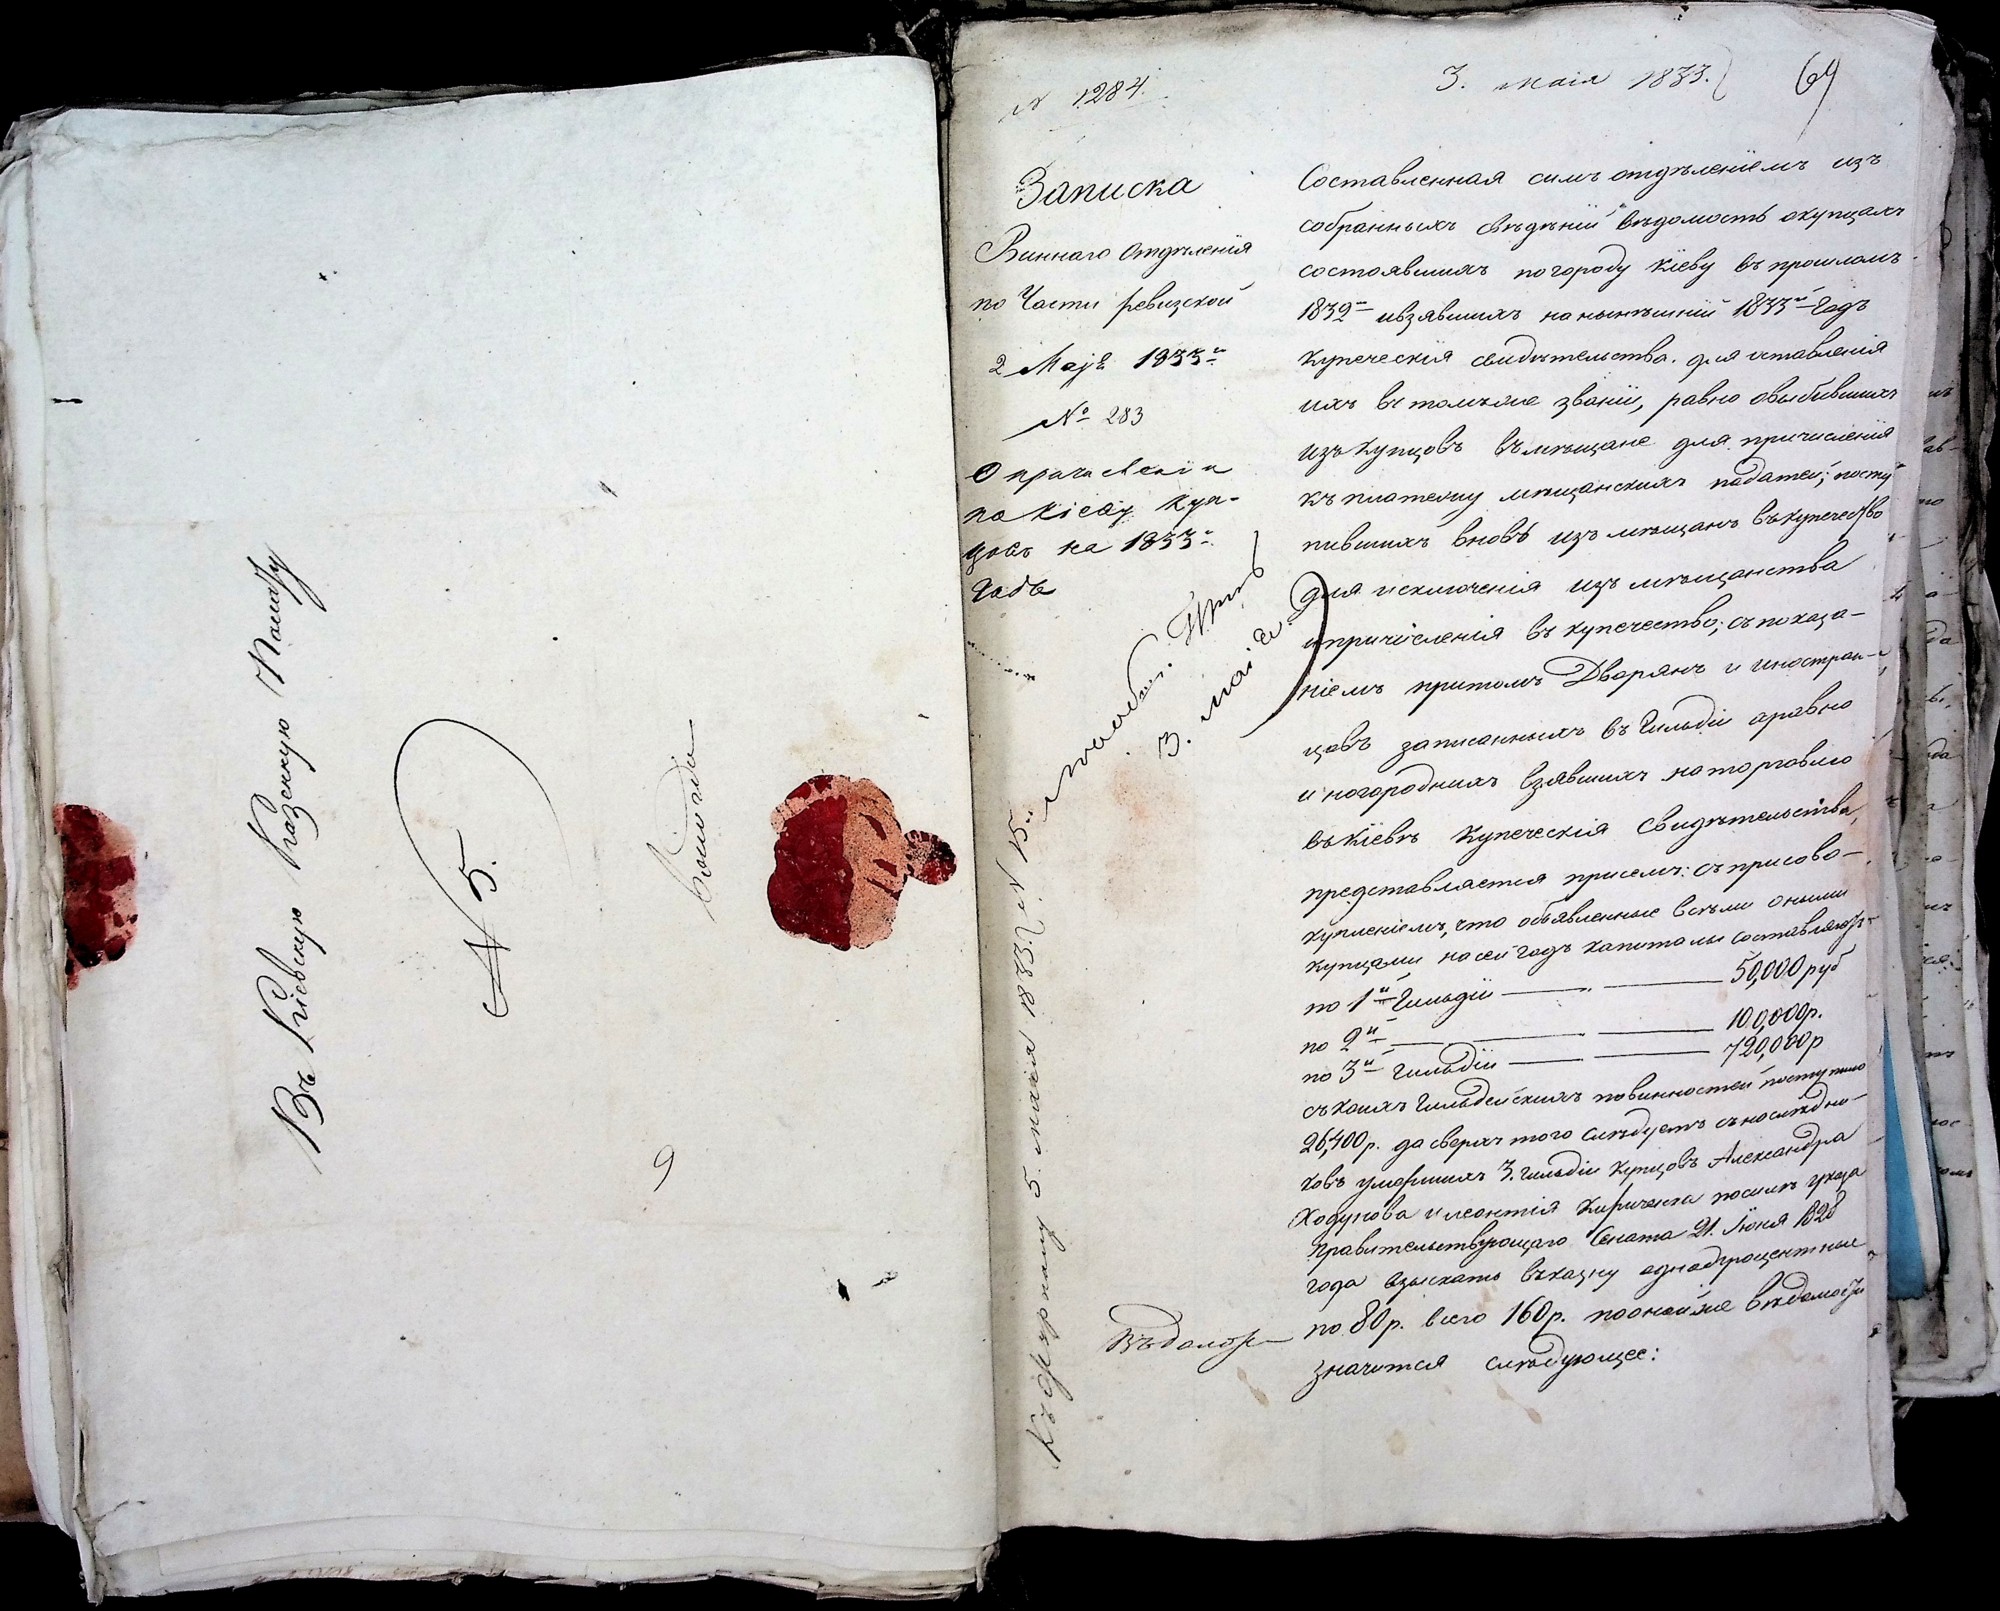 Въ Кіевскую Казенную Палату
№ 5.
9
№ 1284.
3. маія 1833.
69
Записка
Виннаго Отдѣленія
по Части ревизской
2 Маја 1833го
№ 283
О причисленіи
по Кіеву куп-
цовъ на 1833й
Годъ
3. маія.
Къ журналу 5. маія 1833. № 15.
Составленная симъ отдѣленіемъ изъ
собранныхъ свѣдѣній вѣдомость о купцахъ
состоявшихъ по городу Кіеву въ прошломъ
1832м и взявшихъ на нынѣшній 1833й Годъ
Купеческія свидѣтельства. для оставленія
ихъ въ томъ же званіи, равно о выбывшихъ
изъ Купцовъ въ мѣщане для причисленія
къ платежу мѣщанскихъ податей; посту
пившихъ вновь изъ мѣщанъ въ купечество
для исключенія изъ мѣщанства
и причисленія въ купечество; съ показа-
ніемъ притомъ Дворянъ и иностран-
цовъ записанныхъ въ Гильдіи а равно
и ногородныхъ взявшихъ на торговлю
въ Кіевѣ Купеческія Свидѣтельства,
представляется присемъ: съ присово-
купленіемъ, что объявленные всѣми оными
купцами на сей годъ капиталы составляютъ
по 1й Гильдіи — 50,000 руб
по 2й — 100,000р.
по 3й Гильдіи — 720,000р
съ коихъ Гильдейскихъ повинностей поступило
26,400 р. да сверхъ того слѣдуетъ съ наслѣдни-
ковъ умершихъ 3. гильдіи Купцовъ Александра
Ходунова и Леонтія Кириченка по силѣ указа
Правительствующаго Сената 21. Іюня 1828
года взыскать въ казну однопроцентные
по 80 р. всего 160 р. по оной же вѣдомости
значится слѣдующее: